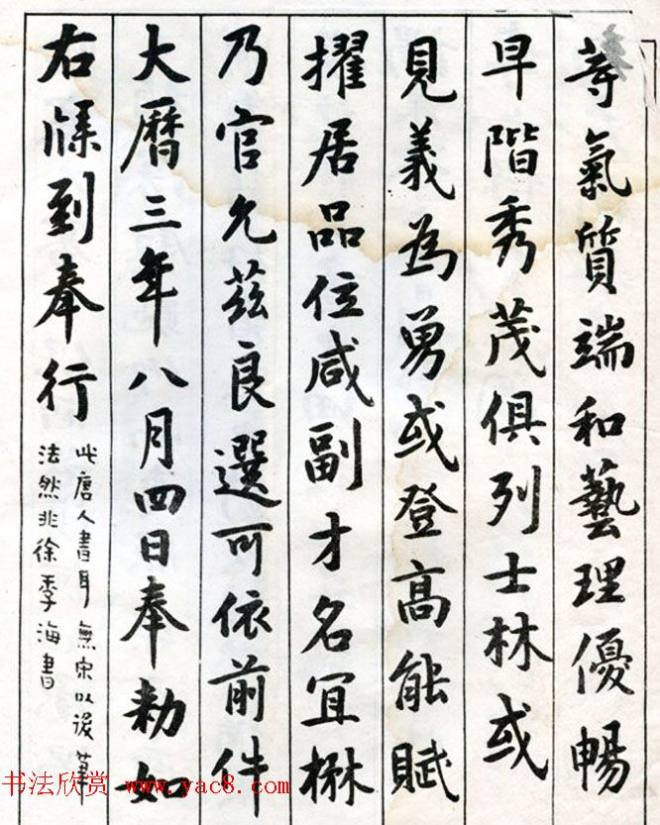 等氣質端和藝理優暢
早階秀茂俱列士林或
見義為勇或登高能賦
擢居品位咸副才名宜楙
乃官允茲良選可依前件
大曆三年八月四日奉勅如
右牒到奉行
此唐人書耳無宋以後筆
法然非徐季海書
书法欣赏 www.yac8.com